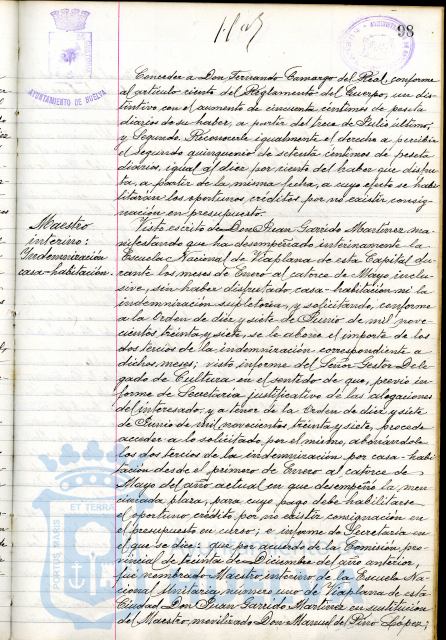 98
AYUNTAMIENTO DE HUELVA
Conceder a Don Fernando Camargo del Real, conforme
al artículo ciento del Reglamento del Cuerpo, un dis-
tintivo con el aumento de cincuenta céntimos de peseta
diarios de su haber, a partir del trece de Julio último;
y Segundo. Reconocerle igualmente el derecho a percibir
el segundo quinquenio de setenta céntimos de peseta
diarios, igual al diez por ciento del haber que disfru-
ta, a partir de la misma fecha, a cuyo efecto se habi-
litarán los oportunos créditos por no existir consig-
nación en presupuesto.
Maestro
interino:
Indemnización
casa-habitación.
Visto escrito de Don Juan Garrido Martínez ma-
nifestando que ha desempeñado interinamente la
Escuela Nacional de Viaplana de esta Capital du-
rante los meses de Enero al catorce de Mayo, inclu-
sive, sin haber disfrutado casa-habitación ni la
indemnización supletoria, y solicitando, conforme
a la Orden de diez y siete de Junio de mil nove-
cientos treinta y siete se le abone el importe de los
dos tercios de la indemnización correspondiente a
dichos meses; visto informe del Señor Gestor Dele-
gado de Cultura en el sentido de que, previo in-
forme de Secretaría justificativo de las alegaciones
del interesado, y a tenor de la Orden de diez y siete
de Junio de mil novecientos treinta y siete, procede
acceder a lo solicitado por el mismo, abonándole
los dos tercios de la indemnización por casa-habi-
tación desde el primero de Enero al catorce de
Mayo del año actual en que desempeñó la men-
cionada plaza, para cuyo pago debe habilitarse
oportuno crédito por no existir consignación en
el presupuesto en curso; e informe de Secretaría en
el que se dice: que por acuerdo de la Comisión pro-
vincial de treinta de Diciembre del año anterior,
fué nombrado Maestro interino de la Escuela Na-
cional Unitaria número uno de Viaplana de esta
Ciudad Don Juan Garrido Martínez en sustitución
del Maestro movilizado Don Manuel del Pino López;
PORTUS MARIS ET TERRAE